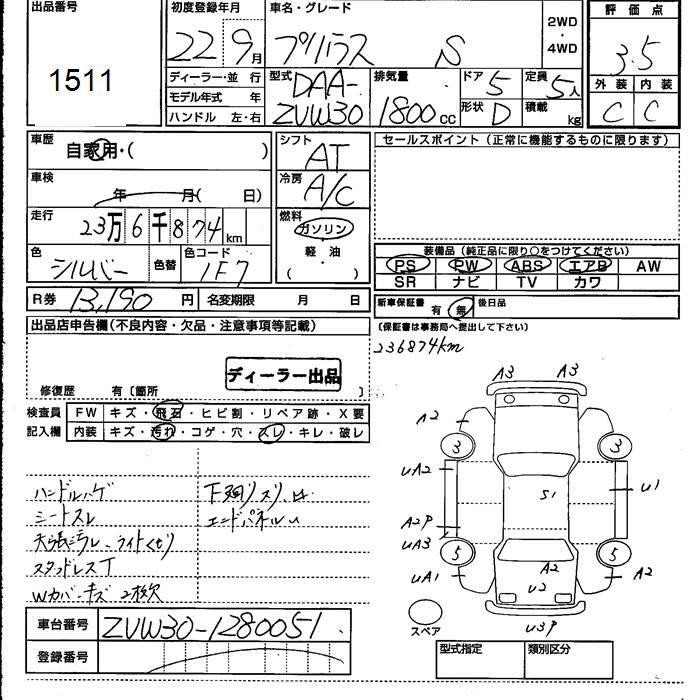 出品番号
1511
初度登録年月
22 9月
車名・グレード
プリウス S
2WD
・
4WD
評価点
3.5
ディーラー・並 行
モデル年式 年
ハンドル 左・右
型式
DAA-
ZVW30
排気量
1800cc
ドア 5
形状 D
定員 5人
積載 kg
外装 内装
C C
車歴
自家用・( )
車検
年 月( 日)
走行
23万6千874km
色
シルバー
色替
色コード
1F7
シフト
AT
冷房
A/C
燃料
ガソリン
軽 油
( )
R券 13,190円
名変期限 月 日
セールスポイント(正常に機能するものに限ります)
装備品(純正品に限り○をつけてください)
PS PW ABS エアB AW
SR ナビ TV カワ
新車保証書 有 無 後日品
(保証書は事務局へ提出して下さい)
236874km
出品店申告欄(不良内容・欠品・注意事項等記載)
ディーラー出品
修復歴 有〔箇所 〕
検査員
記入欄
FW キズ・飛石・ヒビ割・リペア跡・X要
内装 キズ・汚れ・コゲ・穴・スレ・キレ・破レ
ハンドルハゲ
シートスレ
天張汚レ、ライトくもり
スタッドレスT
Wカバーキズ 2枚欠
下廻りスリ、凹
エンドパネルU
A3 A3
A2
3 3
UA2
S1
U1
A2P
UA3
5 5
UA1
A2
A2
U2
U3P
スペア
車台番号 ZVW30-1280051
登録番号
型式指定 類別区分